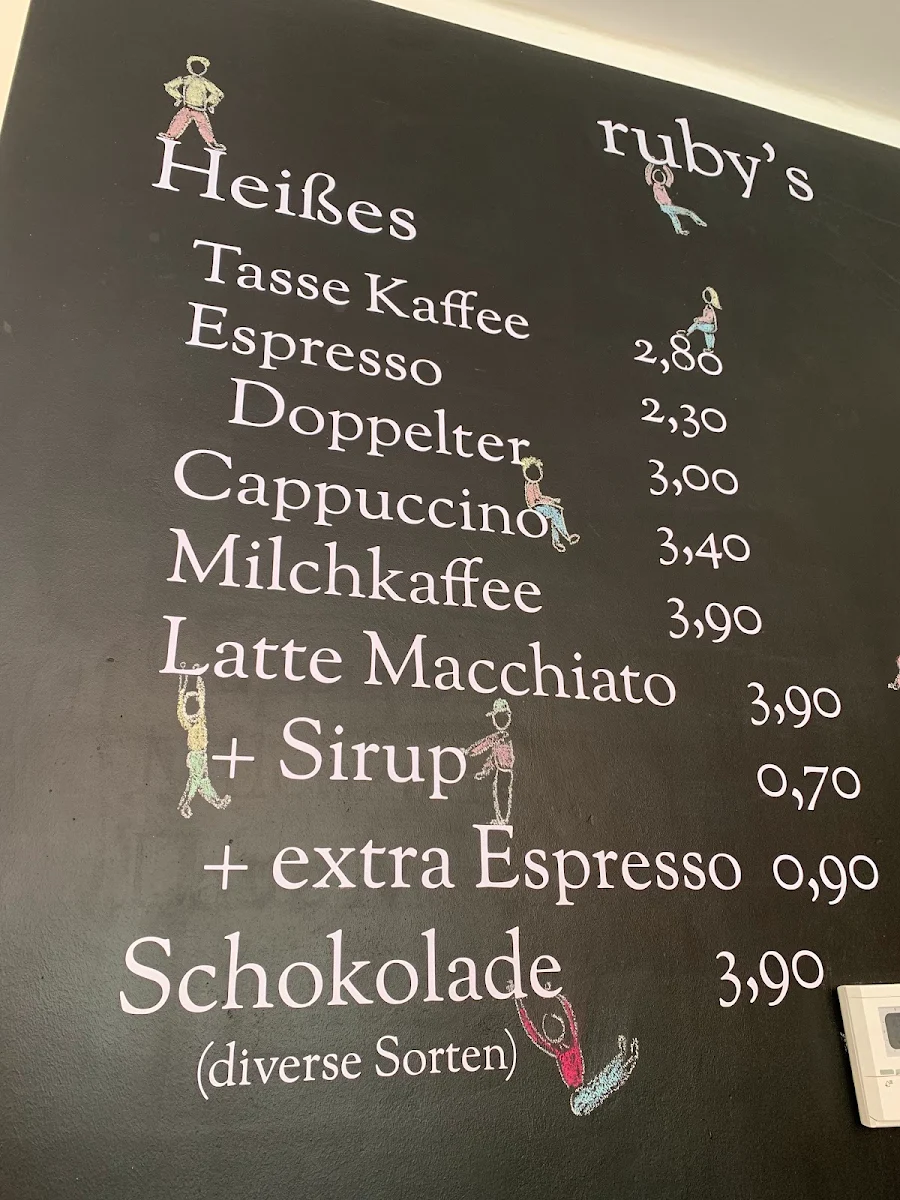 ruby's
Heißes
Tasse Kaffee 2,80
Espresso 2,30
Doppelter 3,00
Cappuccino 3,40
Milchkaffee 3,90
Latte Macchiato 3,90
+ Sirup 0,70
+ extra Espresso 0,90
Schokolade 3,90
(diverse Sorten)